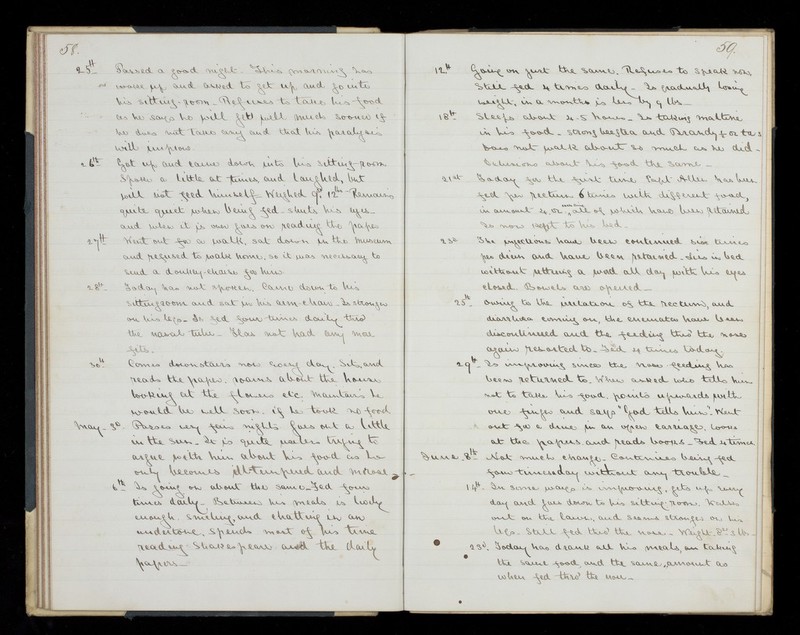 58.
25th Passed a good night. This morning has
woke up and asked to get up and go into
his sitting-room. Refuses to take his food
as he says he will get well much sooner if
he does not take any and that his paralysis
will improve.
26th Got up and came down into his sitting-room
Spoke a little at times and laughed, but
will not feed himself. Weighed 9st 12lbs Remains
quite quiet when being fed. shuts his eyes
and when it is over goes on reading the paper
27th Went out for a walk, sat down in the museum
and refused to walk home, so it was necessary to
send a donkey-chaise for him
28th Today has not spoken. Came down to his
sitting room and sat in his arm-chair. Is stronger
on his legs. Is fed four times daily thro'
the nasal tube. Has not had any more
fits.
30th Comes downstairs now every day. Sits and
reads the paper, roams about the house
looking at the flowers etc. Maintains he
would be well soon, if he took no food
May 3d Passes very fair nights. Goes out a little
in the sun. It is quite useless trying to
argue with him about his food as he
only becomes illtempered and morose
6th Is going on about the same. Fed four
times daily. Between his meals is lively
enough smiling, and chatting in an
undertone. Spends most of his time
reading Shakespeare and the daily
papers.
59.
12th Going on just the same. Refuses to speak now
Still fed 4 times daily. Is gradually losing
weight, in a month is less by 9 lbs
18th Sleeps about 4-5 hours. Is taking maltine
in his food. strong beeftea and Brandy
Does not walk about so much as he did
Delusions about his food the same
21st Today for the first time has been
fed per rectum 6 times with different food,
in amount 4 oz, all of which have been retained
Is now kept to his bed.
23d The injections have been continued six times
per diem and have been retained. Lies in bed
without uttering a word all day with his eyes
closed. Bowels are opened
25th Owing to the irritation of the rectum, and
diarrhœa coming on, the enemata have been
discontinued and the feeding thro' the nose
again resorted to. Fed 4 times today.
29th Is improving since the nose feeding has
been returned to. When asked who tells him
not to take his food, points upwards with
one finger and says "God tells him". Went
out for a drive in an open carriage. Looks
at the papers and reads books. Fed 4 times
June 8th Not much change. Continues being fed
four times a day without any trouble.
14th In some ways is improving, gets up every
day and goes down to his sitting room. Walks
out on the lawn, and seems stronger on his
legs. Still fed thro' the nose. Weight
23d Today has drank all his meals, on taking
the same food and the same amount as
when fed thro' the nose.